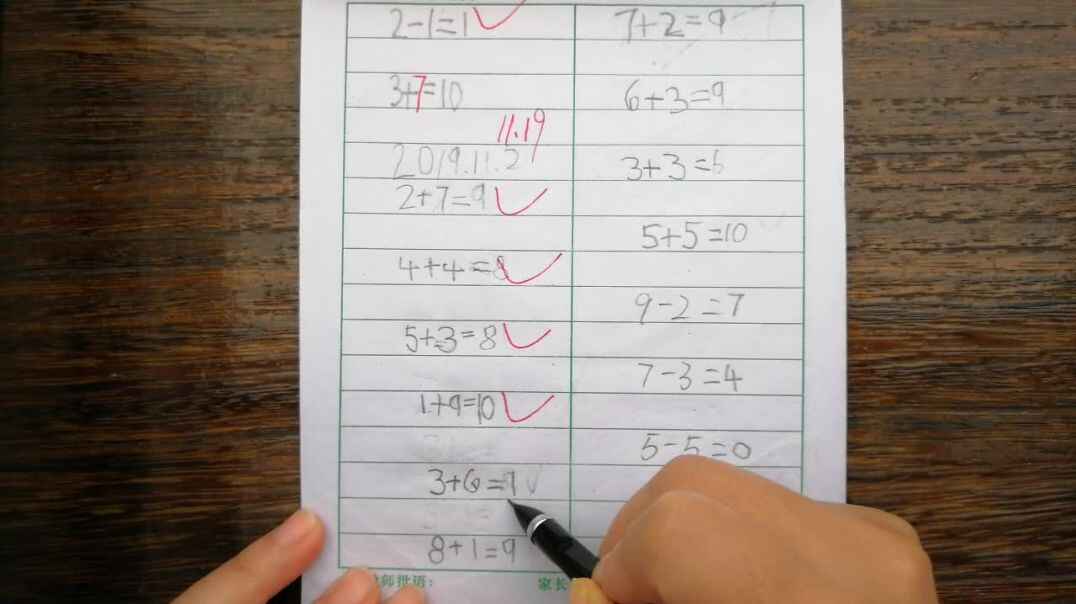 2-1=1
3+7=10
11.19
2019.11.2
2+7=9
4+4=8
5+3=8
1+9=10
3+6=9
8+1=9
7+2=9
6+3=9
3+3=6
5+5=10
9-2=7
7-3=4
5-5=0
师批语:
家长